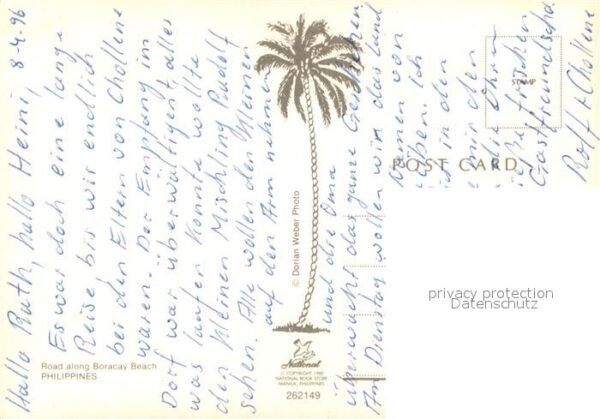 Hallo Ruth, hallo Heini, 8-4-96
Es war doch eine lange
Reise bis wir endlich
bei den Eltern von Chollene
waren. Der Empfang im
Dorf war überwältigent, alles
was laufen konnte wollte
den kleinen Mischling Rudolf
sehen. Alle wollen den kleinen
auf den Arm nehmen
und die Oma
überwacht das ganze Geschehen
Am Dienstag wollen wir das Land
von
Ich
in den
mir den
die Ohren
Gastfreundschaft
Rolf + Chollene
Road along Boracay Beach
PHILIPPINES
© Dorian Weber Photo
National
© COPYRIGHT 1990
NATIONAL BOOK STORE
MANILA, PHILIPPINES
262149
STAMP
POST CARD
privacy protection
Datenschutz